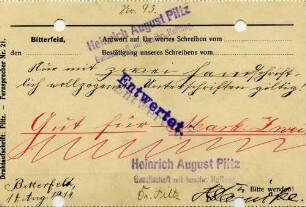 No. 93.
Bitterfeld, Antwort auf Ihr wertes Schreiben vom
Heinrich August Piltz
Bestätigung unseres Schreibens vom
Nur mit zwei handschrift-
lich vollzogenen Unterschriften gültig!
Entwertet.
Gut für Mark
Heinrich August Piltz
Gesellschaft mit beschr. Haftung
Drahtaufschrift: Piltz. - Fernsprecher Nr. 21.
Bitterfeld,
Bitte wenden!
Aug. 1914
Dr. Piltz